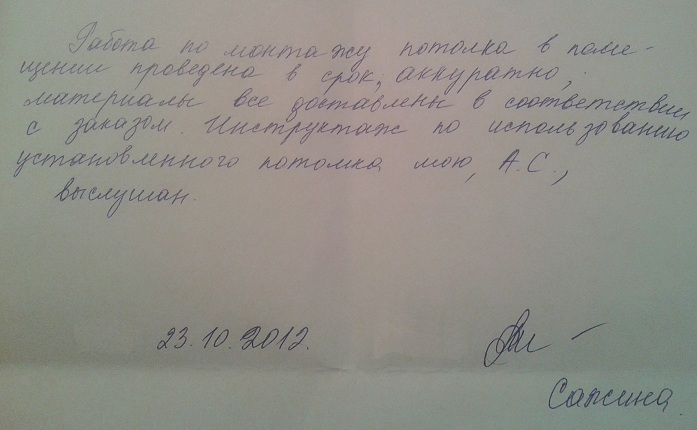 Работа по монтажу потолка в поме-
щении проведена в срок, аккуратно,
материалы все доставлены в соответствии
с заказом. Инструктаж по использованию
установленного потолка мною, А.С.,
выслушан.
23.10.2012.
Сажина